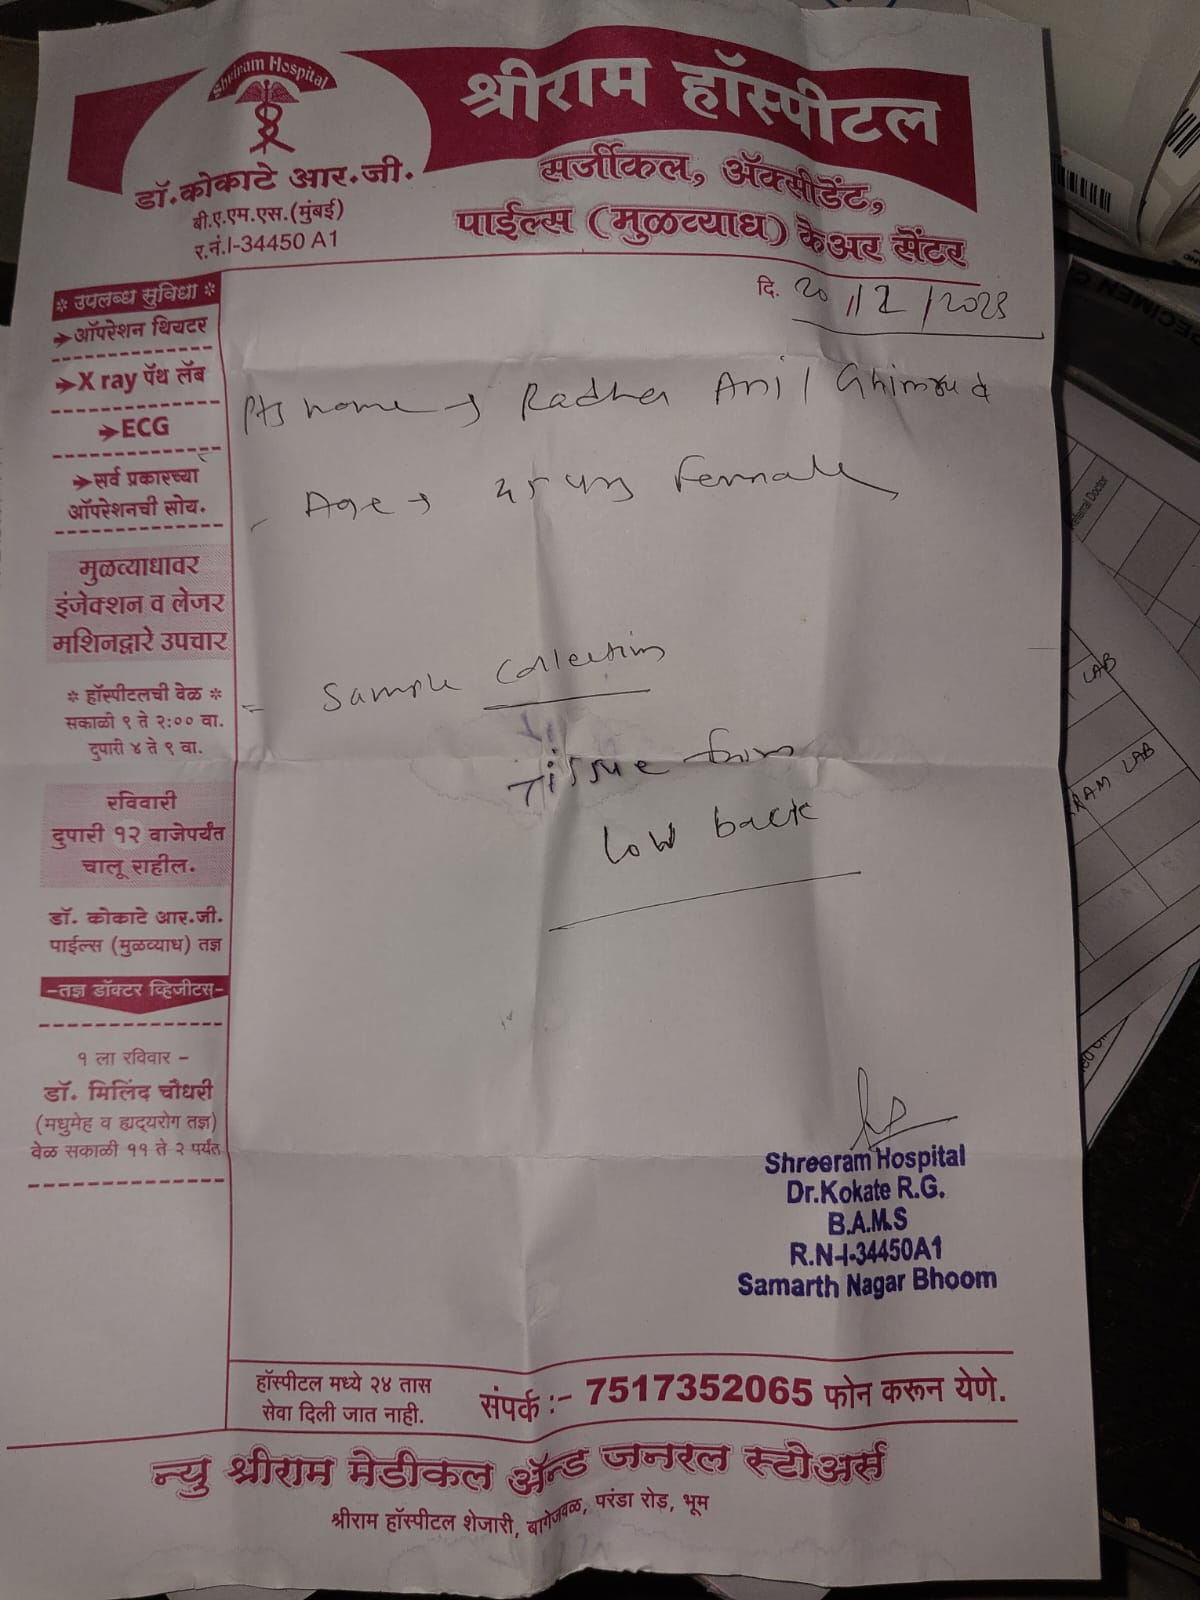 Shriram Hospital
श्रीराम हॉस्पीटल
सर्जीकल, ॲक्सीडेंट,
पाईल्स (मुळव्याध) केअर सेंटर
डॉ.कोकाटे आर.जी.
बी.ए.एम.एस.(मुंबई)
र.नं.I-34450 A1
दि. 20/12/2023
* उपलब्ध सुविधा *
→ऑपरेशन थियटर
→X ray पॅथ लॅब
→ECG
→सर्व प्रकारच्या
ऑपरेशनची सोय.
मुळव्याधावर
इंजेक्शन व लेजर
मशिनद्वारे उपचार
* हॉस्पीटलची वेळ *
सकाळी ९ ते २:०० वा.
दुपारी ४ ते ९ वा.
रविवारी
दुपारी १२ वाजेपर्यंत
चालू राहील.
डॉ. कोकाटे आर.जी.
पाईल्स (मुळव्याध) तज्ञ
-तज्ञ डॉक्टर व्हिजीटस्-
१ ला रविवार -
डॉ. मिलिंद चौधरी
(मधुमेह व ह्यदयरोग तज्ञ)
वेळ सकाळी ११ ते २ पर्यंत
Pts name → Radha Anil
- Age → Female
- Sample Collection
Tissue from
Low back
Shreeram Hospital
Dr.Kokate R.G.
B.A.M.S
R.N-I-34450A1
Samarth Nagar Bhoom
हॉस्पीटल मध्ये २४ तास
सेवा दिली जात नाही.
संपर्क :- 7517352065 फोन करून येणे.
न्यु श्रीराम मेडीकल ॲन्ड जनरल स्टोअर्स
श्रीराम हॉस्पीटल शेजारी, बागेजवळ, परंडा रोड, भूम
Referral Doctor
LAB
RAM LAB